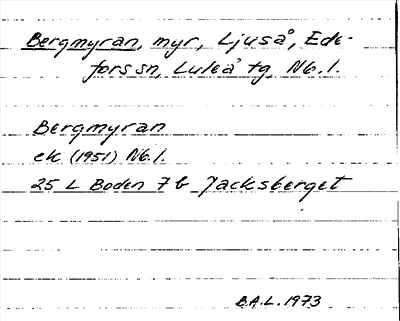 Bergmyran, myr, Ljuså, Ede-
fors sn, Luleå tg, Nb.l.
Bergmyran
ek (1951) Nb.l.
25 L Boden 7 b Jacksberget
B.A.L. 1973